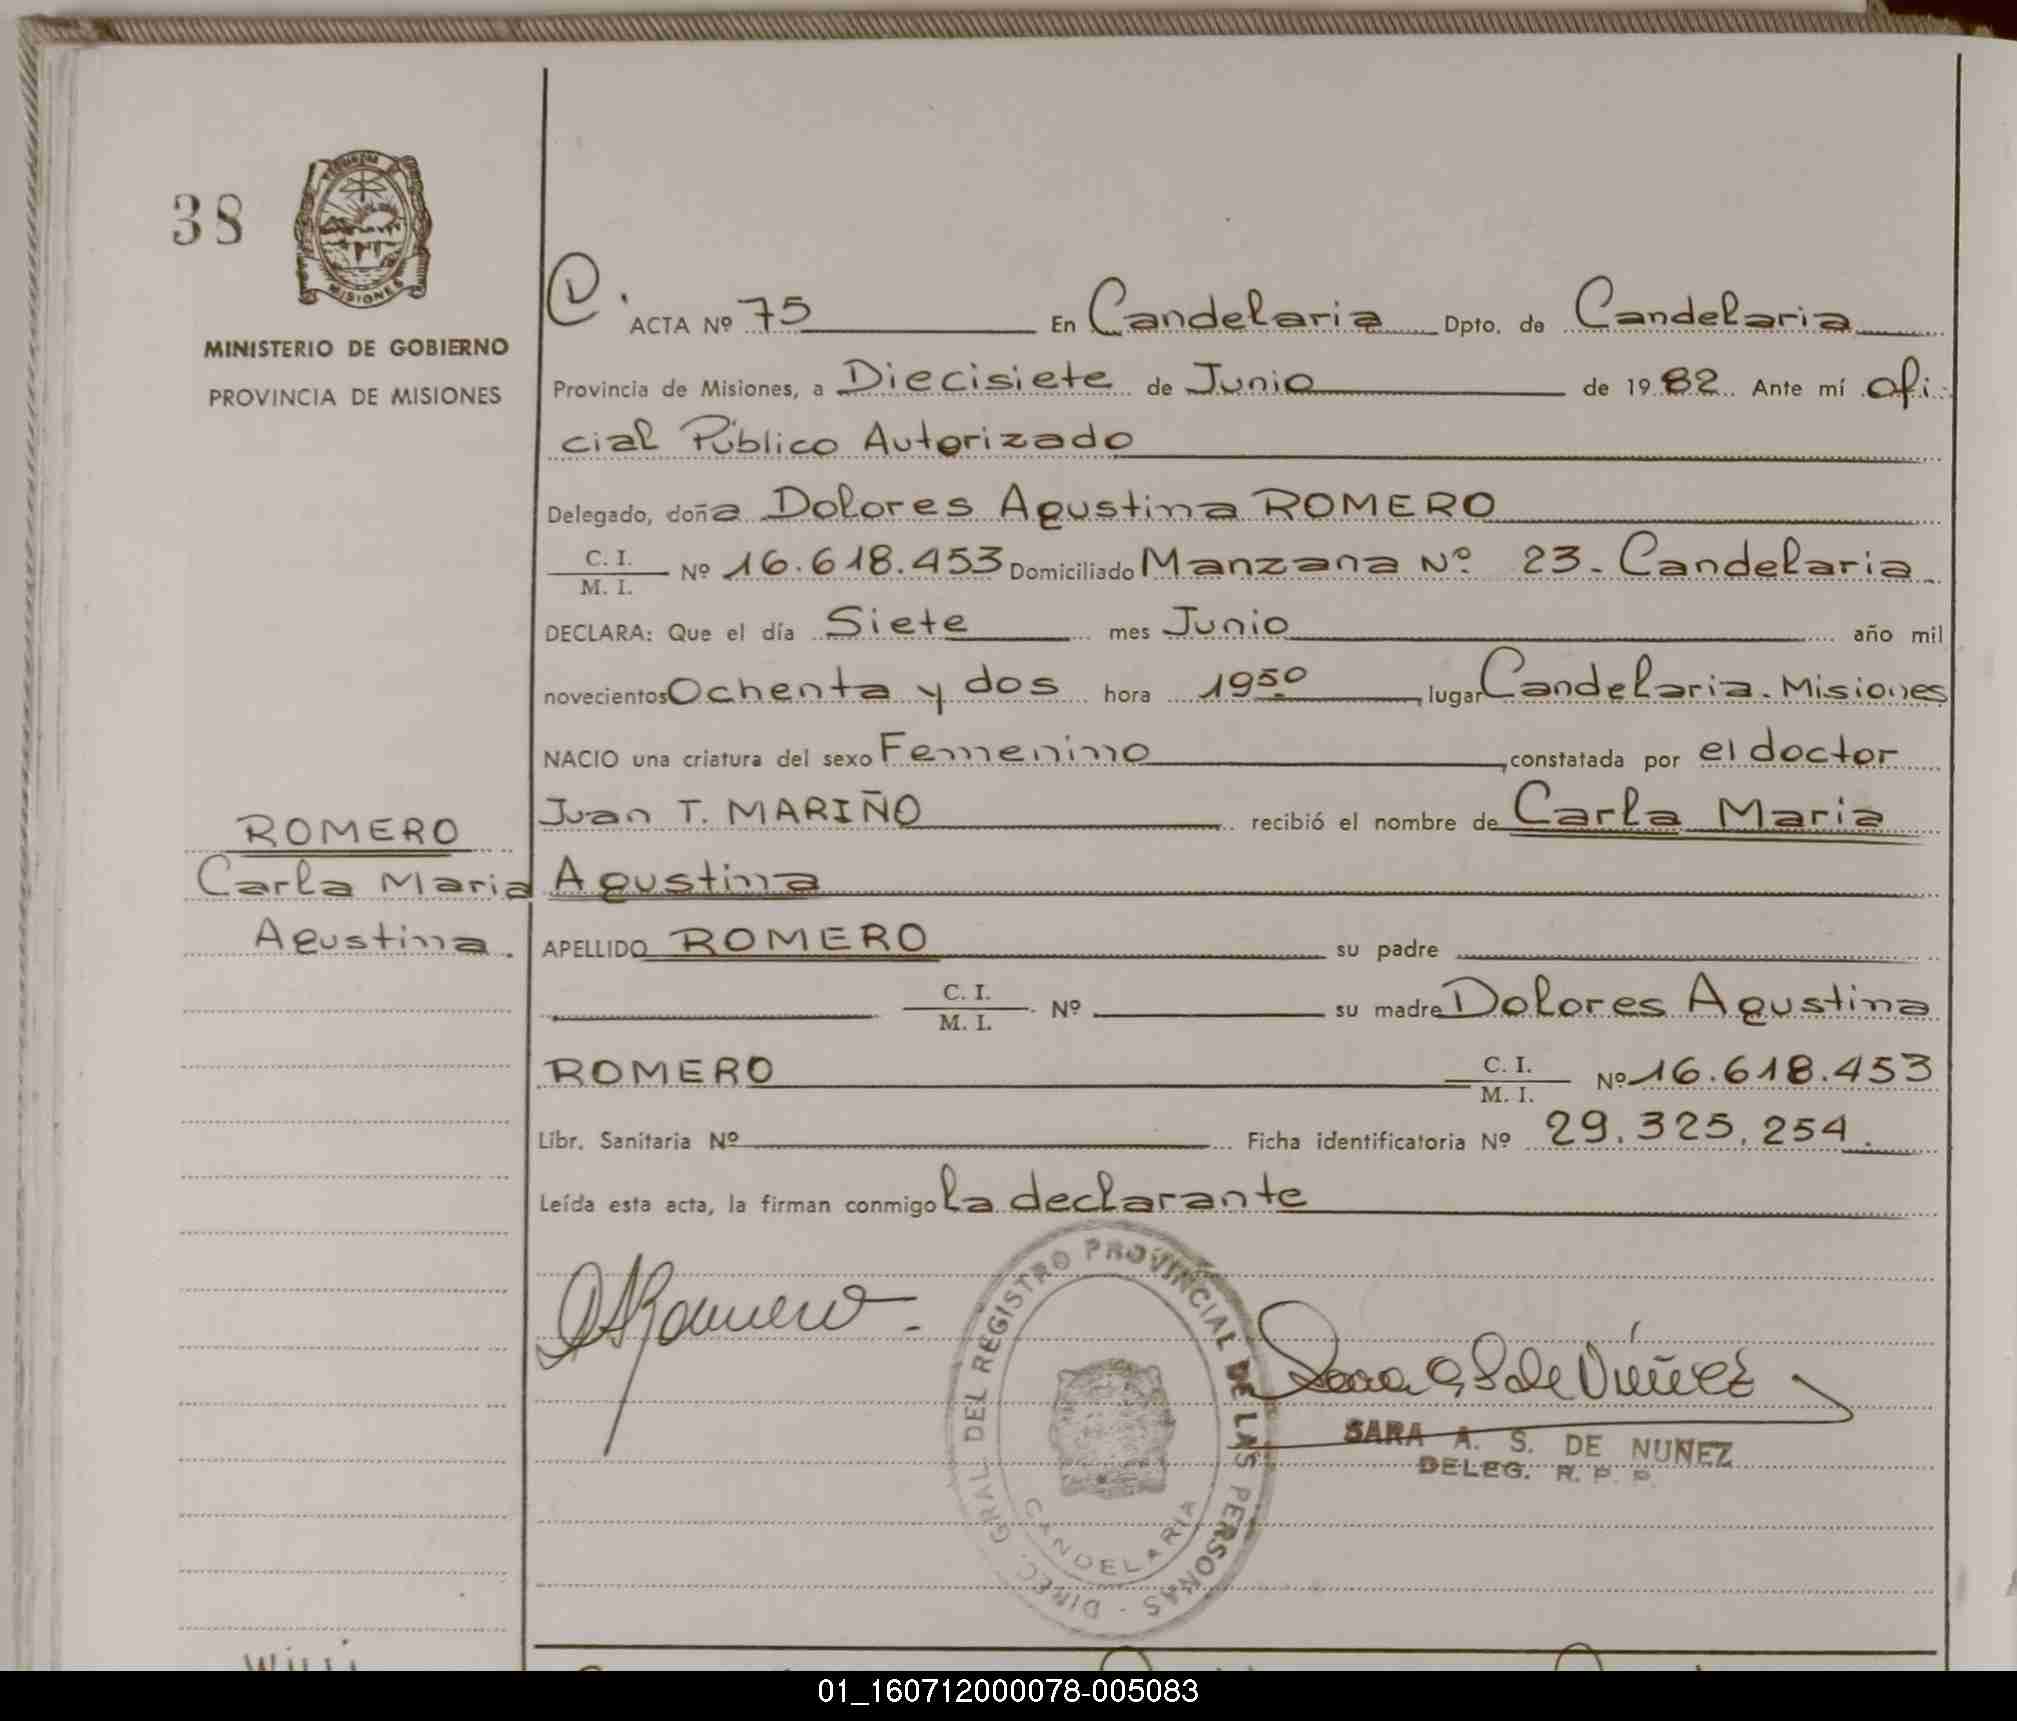 38
MISIONES
MINISTERIO DE GOBIERNO
PROVINCIA DE MISIONES
ACTA Nº 75 En Candelaria Dpto. de Candelaria
Provincia de Misiones, a Diecisiete de Junio de 1982 Ante mí ofi
cial Público Autorizado
Delegado, doña Dolores Agustina ROMERO
C. I.
M. I. Nº 16.618.453 Domiciliado Manzana Nº 23. Candelaria
DECLARA: Que el día Siete mes Junio año mil
novecientos Ochenta y dos hora 19 50, lugar Candelaria. Misiones
NACIO una criatura del sexo Femenino, constatada por el doctor
Juan T. MARIÑO recibió el nombre de Carla Maria
Agustina
ROMERO
Carla Maria
Agustina.
APELLIDO ROMERO su padre
C. I.
M. I. Nº su madre Dolores Agustina
ROMERO C. I.
M. I. Nº 16.618.453
Libr. Sanitaria Nº Ficha identificatoria Nº 29.325.254.
Leída esta acta, la firman conmigo la declarante
DIREC. GRAL. DEL REGISTRO PROVINCIAL DE LAS PERSONAS -
CANDELARIA
Sara A S de Nuñez
SARA A. S. DE NUÑEZ
DELEG. R. P. P.
01_160712000078-005083